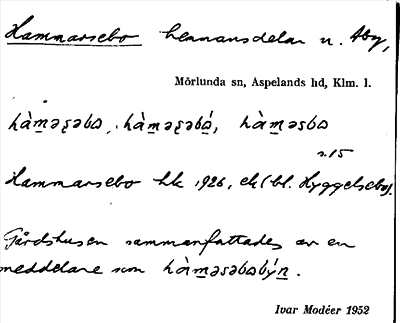 Hammarsebo hemmansdelar n. Åby,
Mörlunda sn, Aspelands hd, Klm. l.
hàm̲əʂəbɷ, hàm̲əʂəbɷ́, hàm̲əsbɷ
s. 15
Hammarsebo hk 1926, ek (bl. Hyggelsebo).
Gårdshusen sammanfattades av en
meddelare som hàm̲əsəbɷbýn̲.
Ivar Modéer 1952